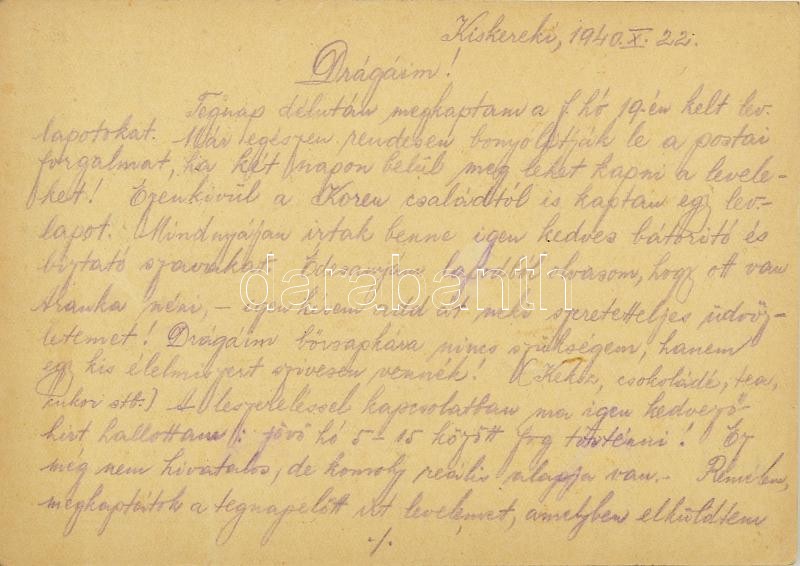 Kiskereki, 1940. X. 22.
Drágáim!
Tegnap délután megkaptam a f. hó 19-én kelt lev.
lapotokat. Már egészen rendesen bonyolítják le a postai
forgalmat, ha két napon belül meg lehet kapni a levele-
ket! Ezenkívül a Koren családtól is kaptam egy lev-
lapot. Mindnyájan irtak benne igen kedves bátorító és
biztató szavakat. Édesanyám lapjából olvasom, hogy ott van
Aranka néni, – igen kérem add át neki szeretetteljes üdvöz-
letemet! Drágáim bőrsapkára nincs szükségem, hanem
egy kis élelmiszert szívesen vennék! (Keksz, csokoládé, tea,
cukor stb.) A leszereléssel kapcsolatban ma igen kedvező
hírt hallottam: jövő hó 5-15 között fog történni! Ez
még nem hivatalos, de komoly reális alapja van. - Remélem,
megkaptátok a tegnapelőtt írt levelemet, amelyben elküldtem
./.
darabanth